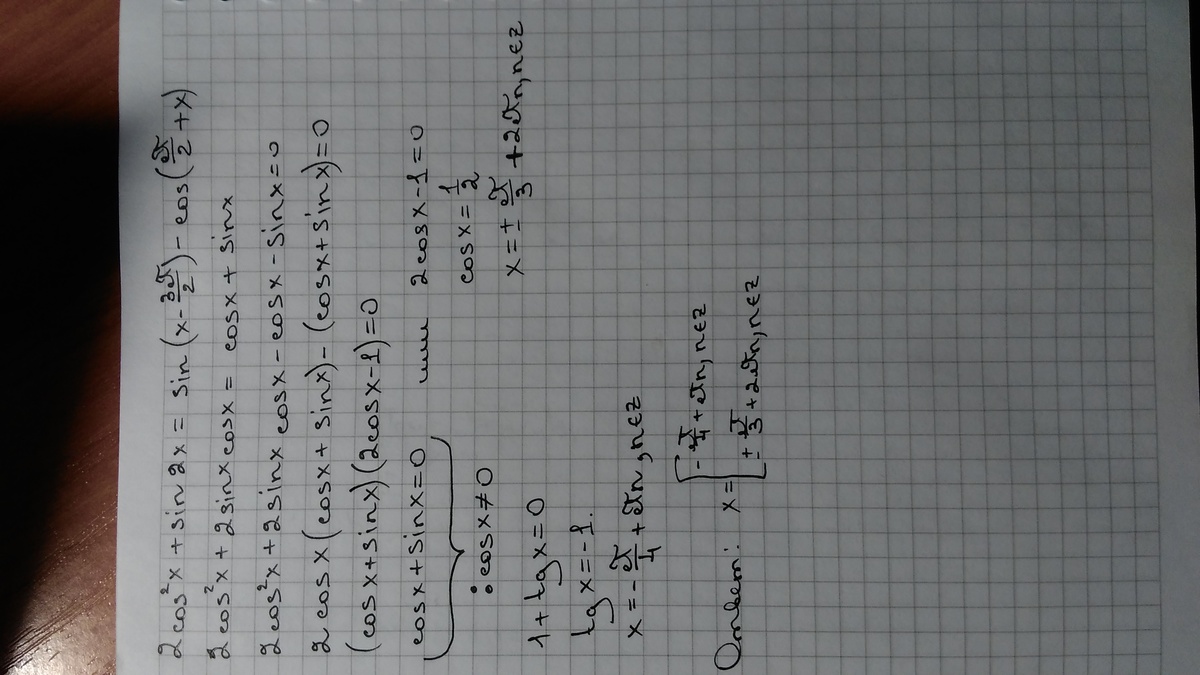 2cos²x + sin2x = sin(x - 3π/2) - cos(π/2 + x)
2cos²x + 2sinxcosx = cosx + sinx
2cos²x + 2sinx cosx - cosx - sinx = 0
2cosx(cosx + sinx) - (cosx + sinx) = 0
(cosx + sinx)(2cosx - 1) = 0
cosx + sinx = 0 или 2cosx - 1 = 0
: cosx ≠ 0 cosx = 1/2
1 + tgx = 0 x = ± π/3 + 2πn, n∈z
tgx = -1.
x = - π/4 + πn, n∈z
Ответ: x = [ - π/4 + πn, n∈z
± π/3 + 2πn, n∈z